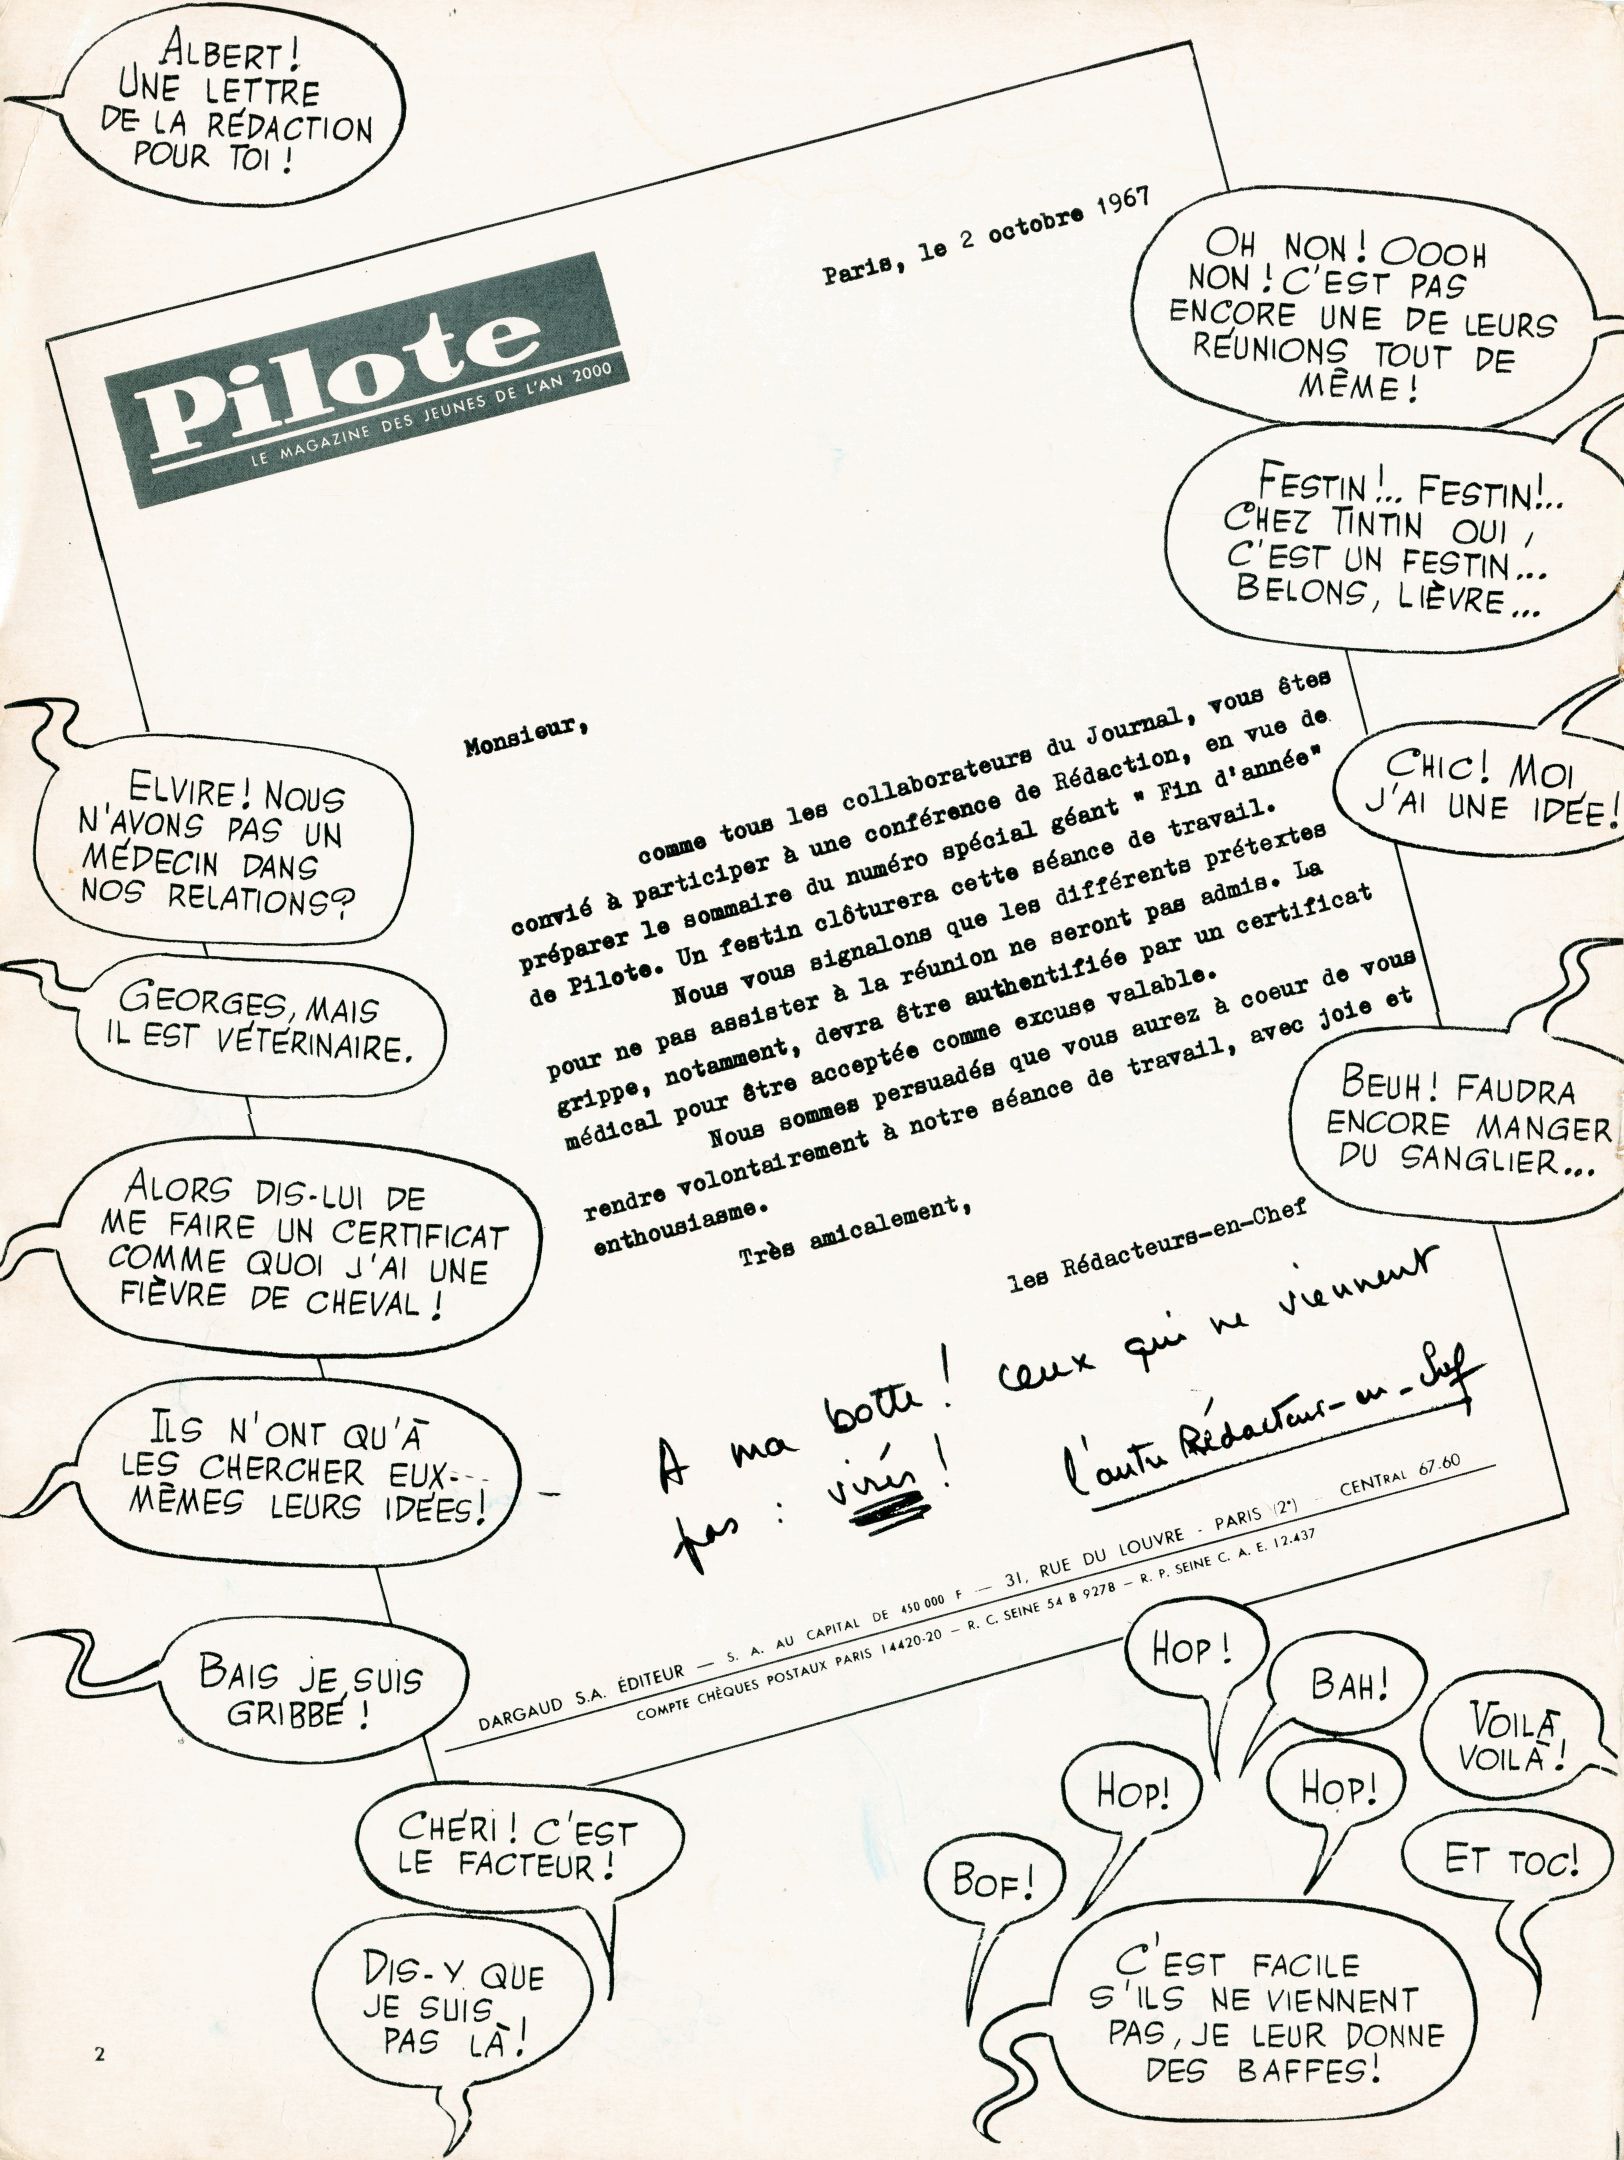 ALBERT!
UNE LETTRE
DE LA RÉDACTION
POUR TOI!
Paris, le 2 octobre 1967
Pilote
LE MAGAZINE DES JEUNES DE L'AN 2000
OH NON! OOOH
NON! C'EST PAS
ENCORE UNE DE LEURS
RÉUNIONS TOUT DE
MÊME!
FESTIN!.. FESTIN!..
CHEZ TINTIN OUI,
C'EST UN FESTIN...
BELONS, LIÈVRE...
CHIC! MOI,
J'AI UNE IDÉE!
BEUH! FAUDRA
ENCORE MANGER
DU SANGLIER...
Monsieur,
comme tous les collaborateurs du Journal, vous êtes
convié à participer à une conférence de Rédaction, en vue de
préparer le sommaire du numéro spécial géant " Fin d'année"
de Pilote. Un festin clôturera cette séance de travail.
Nous vous signalons que les différents prétextes
pour ne pas assister à la réunion ne seront pas admis. La
grippe, notamment, devra être authentifiée par un certificat
médical pour être acceptée comme excuse valable.
Nous sommes persuadés que vous aurez à coeur de vous
rendre volontairement à notre séance de travail, avec joie et
enthousiasme.
Très amicalement,
les Rédacteurs-en-Chef
A ma botte! ceux qui ne viennent
pas : virés!
l'autre Rédacteur-en-Chef
DARGAUD S.A. ÉDITEUR — S. A. AU CAPITAL DE 450 000 F — 31, RUE DU LOUVRE - PARIS (2e) - CENTRAL 67.60
COMPTE CHÈQUES POSTAUX PARIS 14420-20 — R. C. SEINE 54 B 9278 — R. P. SEINE C. A. E. 12.437
ELVIRE! NOUS
N'AVONS PAS UN
MÉDECIN DANS
NOS RELATIONS?
GEORGES, MAIS
IL EST VÉTÉRINAIRE.
ALORS DIS-LUI DE
ME FAIRE UN CERTIFICAT
COMME QUOI J'AI UNE
FIÈVRE DE CHEVAL!
ILS N'ONT QU'À
LES CHERCHER EUX-
MÊMES LEURS IDÉES!
BAIS JE SUIS
GRIBBÉ!
CHÉRI! C'EST
LE FACTEUR!
DIS-Y QUE
JE SUIS
PAS LÀ!
HOP!
BAH!
VOILÀ,
VOILÀ!
HOP!
HOP!
BOF!
ET TOC!
C'EST FACILE
S'ILS NE VIENNENT
PAS, JE LEUR DONNE
DES BAFFES!
2